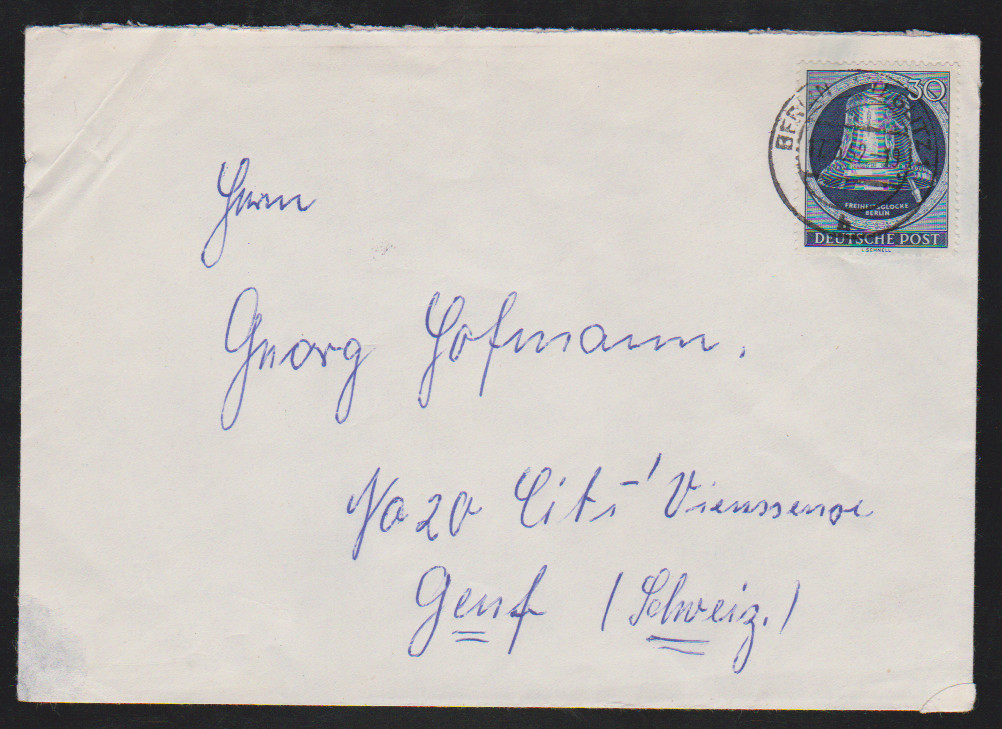 30
BERLIN
FREIHEITSGLOCKE
BERLIN
DEUTSCHE POST
L. SCHNELL
b
Herrn
Georg Hofmann.
No 20 Cité Vieusseuse
Genf (Schweiz.)